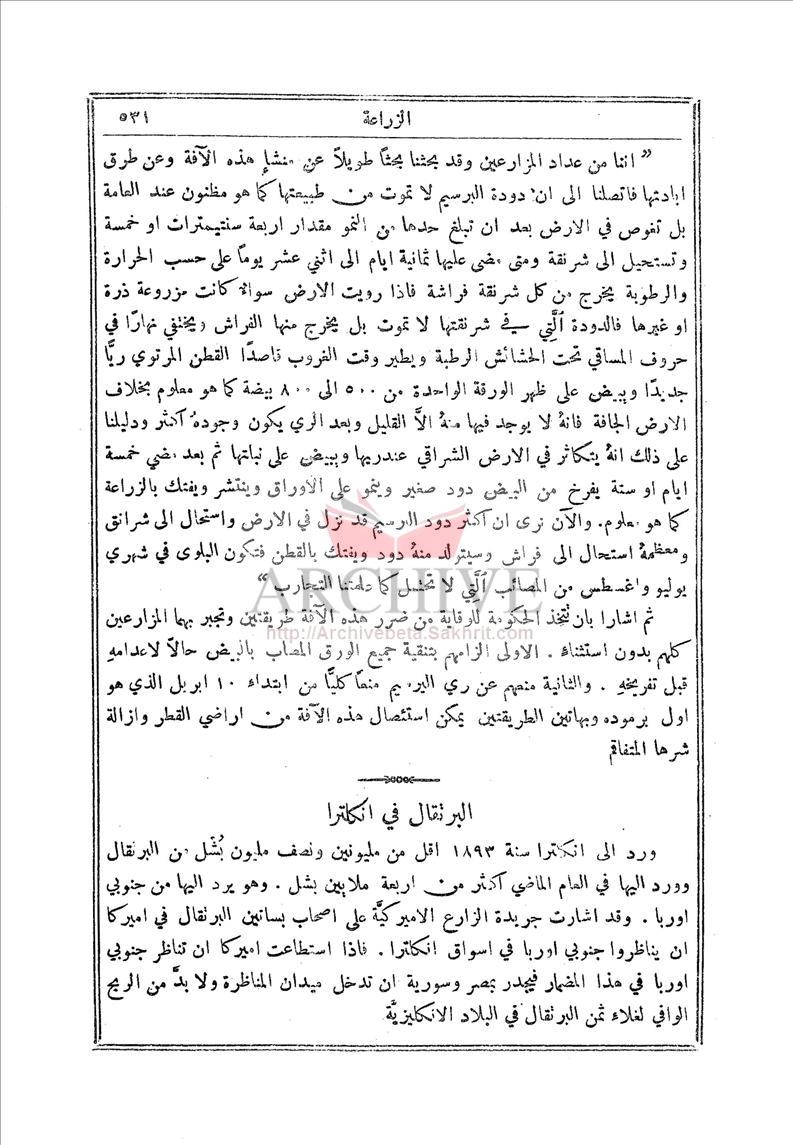 الزراعة ٥٣١
” اننا من عداد المزارعين وقد بحثنا بحثاً طويلاً عن منشإِ هذه الآفة وعن طرق
ابادتها فاتصلنا الى ان دودة البرسيم لا تموت من طبيعتها كما هو مظنون عند العامة
بل تغوص في الارض بعد ان تبلغ حدها من النمو مقدار اربعة سنتيمترات او خمسة
وتستحيل الى شرنقة ومتى مضى عليها ثمانية ايام الى اثني عشر يوماً على حسب الحرارة
والرطوبة يخرج من كل شرنقة فراشة فاذا رويت الارض سواءٌ كانت مزروعة ذرة
او غيرها فالدودة الَّتي في شرنقتها لا تموت بل يخرج منها الفراش ويختفي نهارًا في
حروف المساقي تحت الحشائش الرطبة ويطير وقت الغروب قاصدًا القطن المرتوي ريًّا
جديدًا ويبيض على ظهر الورقة الواحدة من ٥٠٠ الى ٨٠٠ بيضة كما هو معلوم بخلاف
الارض الجافة فانهُ لا يوجد فيها منهُ الاَّ القليل وبعد الري يكون وجودهُ اكثر ودليلنا
على ذلك انهُ يتكاثر في الارض الشراقي عند ريها ويبيض على نباتها ثم بعد مضي خمسة
ايام او ستة يفرخ من البيض دود صغير وينمو على الاوراق وينتشر ويفتك بالزراعة
كما هو معلوم. والآن نرى ان اكثر دود البرسيم قد نزل في الارض واستحال الى شرانق
ومعظمهُ استحال الى فراش وسيتولد منهُ دود ويفتك بالقطن فتكون البلوى في شهري
يوليو واغسطس من المصائب الَّتي لا تحتمل كما علمتنا التجارب “
ثم اشارا بان تتخذ الحكومة للوقاية من ضرر هذه الآفة طريقتين وتجبر بهما المزارعين
كلهم بدون استثناء . الاولى الزامهم بتنقية جميع الورق المصاب بالبيض حالاً لاعدامهِ
قبل تفريخهِ . والثانية منعهم عن ري البرسيم منعاً كليًّا من ابتداء ١٠ ابريل الذي هو
اول برموده وبهاتين الطريقتين يمكن استئصال هذه الآفة من اراضي القطر وازالة
شرها المتفاقم
البرتقال في انكلترا
ورد الى انكلترا سنة ١٨٩٣ اقل من مليونين ونصف مليون بُشل من البرتقال
وورد اليها في العام الماضي اكثر من اربعة ملايين بشل . وهو يرد اليها من جنوبي
اوربا . وقد اشارت جريدة الزارع الاميركيَّة على اصحاب بساتين البرتقال في اميركا
ان يناظروا جنوبي اوربا في اسواق انكلترا . فاذا استطاعت اميركا ان تناظر جنوبي
اوربا في هذا المضمار فيجدر بمصر وسورية ان تدخل ميدان المناظرة ولا بدَّ من الربح
الوافي لغلاء ثمن البرتقال في البلاد الانكليزيَّة
ARCHIVE
http://Archivebeta.Sakhrit.com